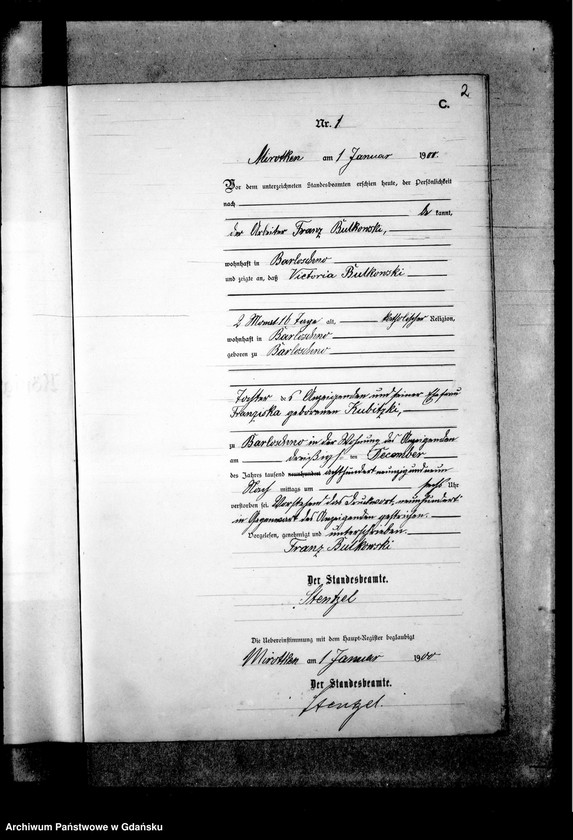 2
C.
Nr. 1
Mirotken am 1 Januar 1900.
Vor dem unterzeichneten Standesbeamten erschien heute, der Persönlichkeit
nach
be kannt,
der Arbeiter Franz Bulkowski,
wohnhaft in Barloschno
und zeigte an, daß Victoria Bulkowski
2 Monat 16 Tage alt, katholischer Religion,
wohnhaft in Barloschno
geboren zu Barloschno
Tochter des Anzeigenden und seiner Ehefrau
Franziska geborenen Kubitzki,
zu Barloschno in der Wohnung des Anzeigenden
am dreißigsten December
des Jahres tausend neunhundert achthundert neunzig und neun
Nach mittags um sechs Uhr
verstorben sei. Vorstehend das Druckwort „neunhundert“
in Gegenwart des Anzeigenden gestrichen.
Vorgelesen, genehmigt und unterschrieben.
Franz Bulkowski
Der Standesbeamte.
Stenzel
Die Uebereinstimmung mit dem Haupt-Register beglaubigt
Mirotken am 1 Januar 1900
Der Standesbeamte.
Stenzel.
Archiwum Państwowe w Gdańsku